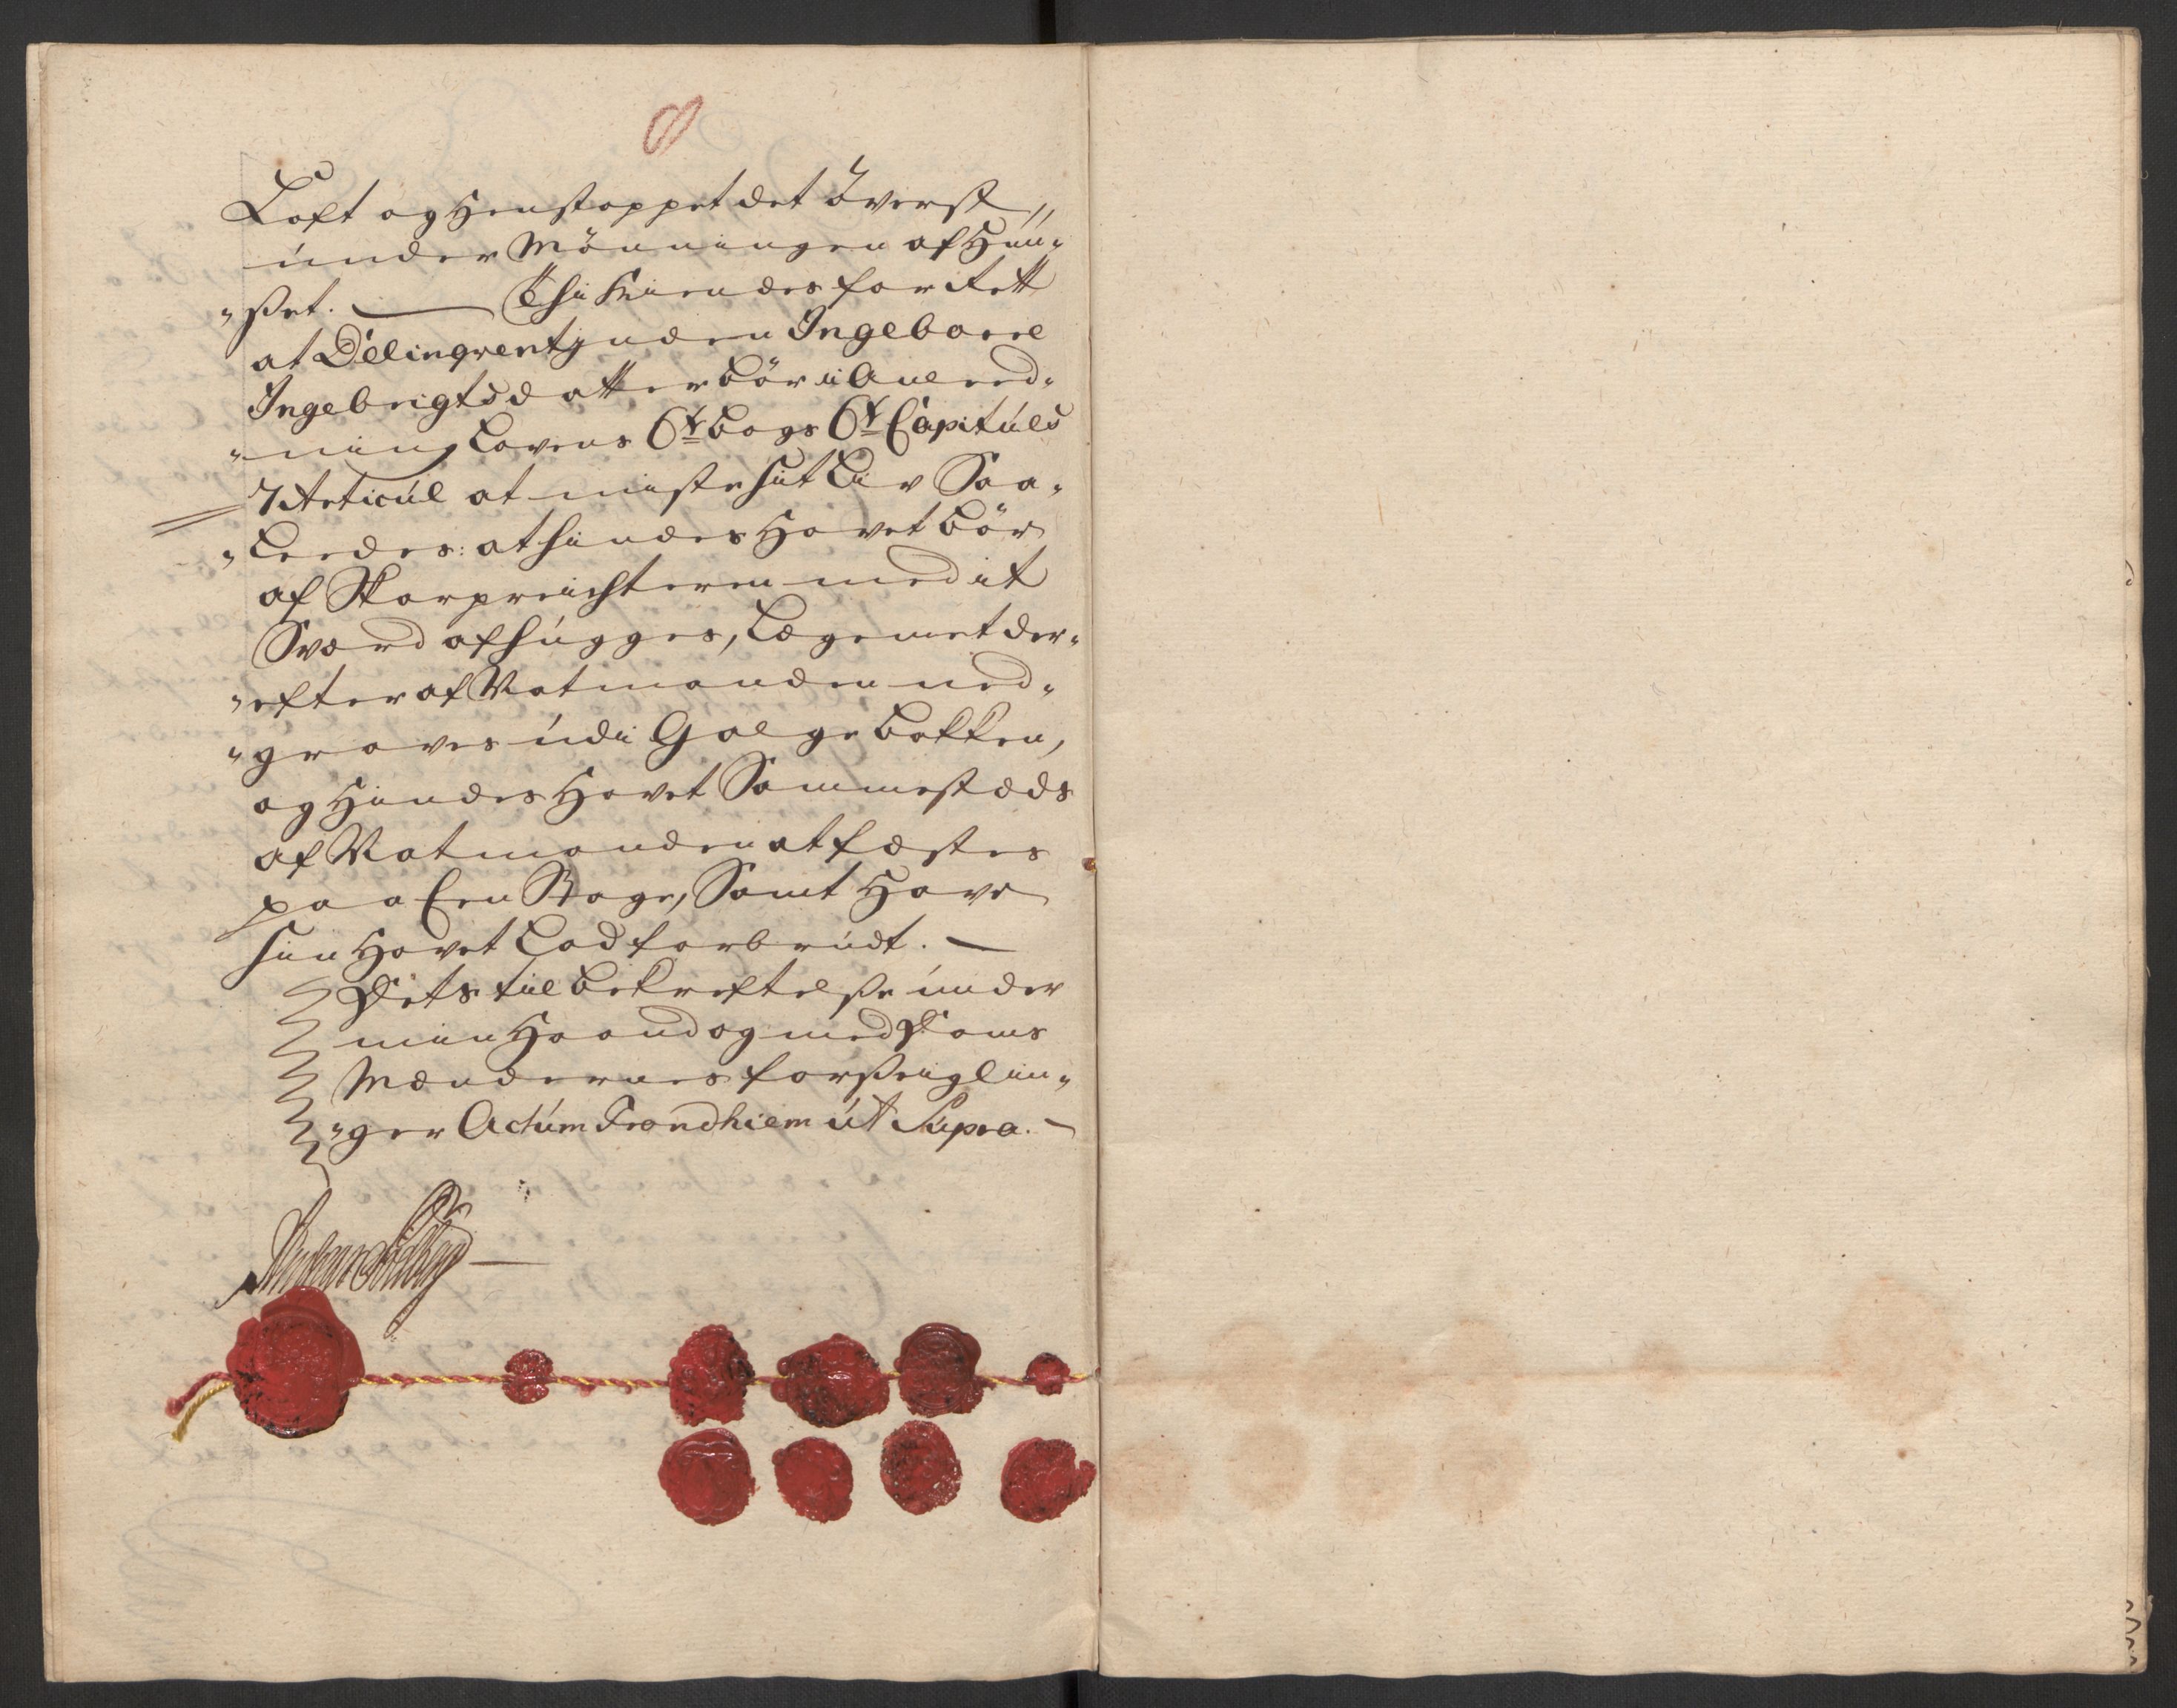 Loft og Henstoppet det Överst,,
under Mönningen af Huu„
„ßet. — Thi Kiendes for Rett
at Delinqventinden Ingeborre
Ingebrigtsdatter bör i Anleed„
„ning Lovens 6te bogs 6te Capituls
7 Articul at miste sit Liv Saa„
„Leedes: at hindes Hovet bör
af Skarpreichteren med it
Sværd afhugges, Legemet der„
„efter af Natmanden ned„
„graves udi Galgebakken,
og Hindes Hovet Sammestæds
af Natmanden at fæstes
paa Een Stage, Samt Have
sin Hovet Lod forbrudt. —
Dets til bekreftelße under
min Haand og med Doms
Mændernes forßeiglin„
„ger Actum Trondhiem út Supra. —